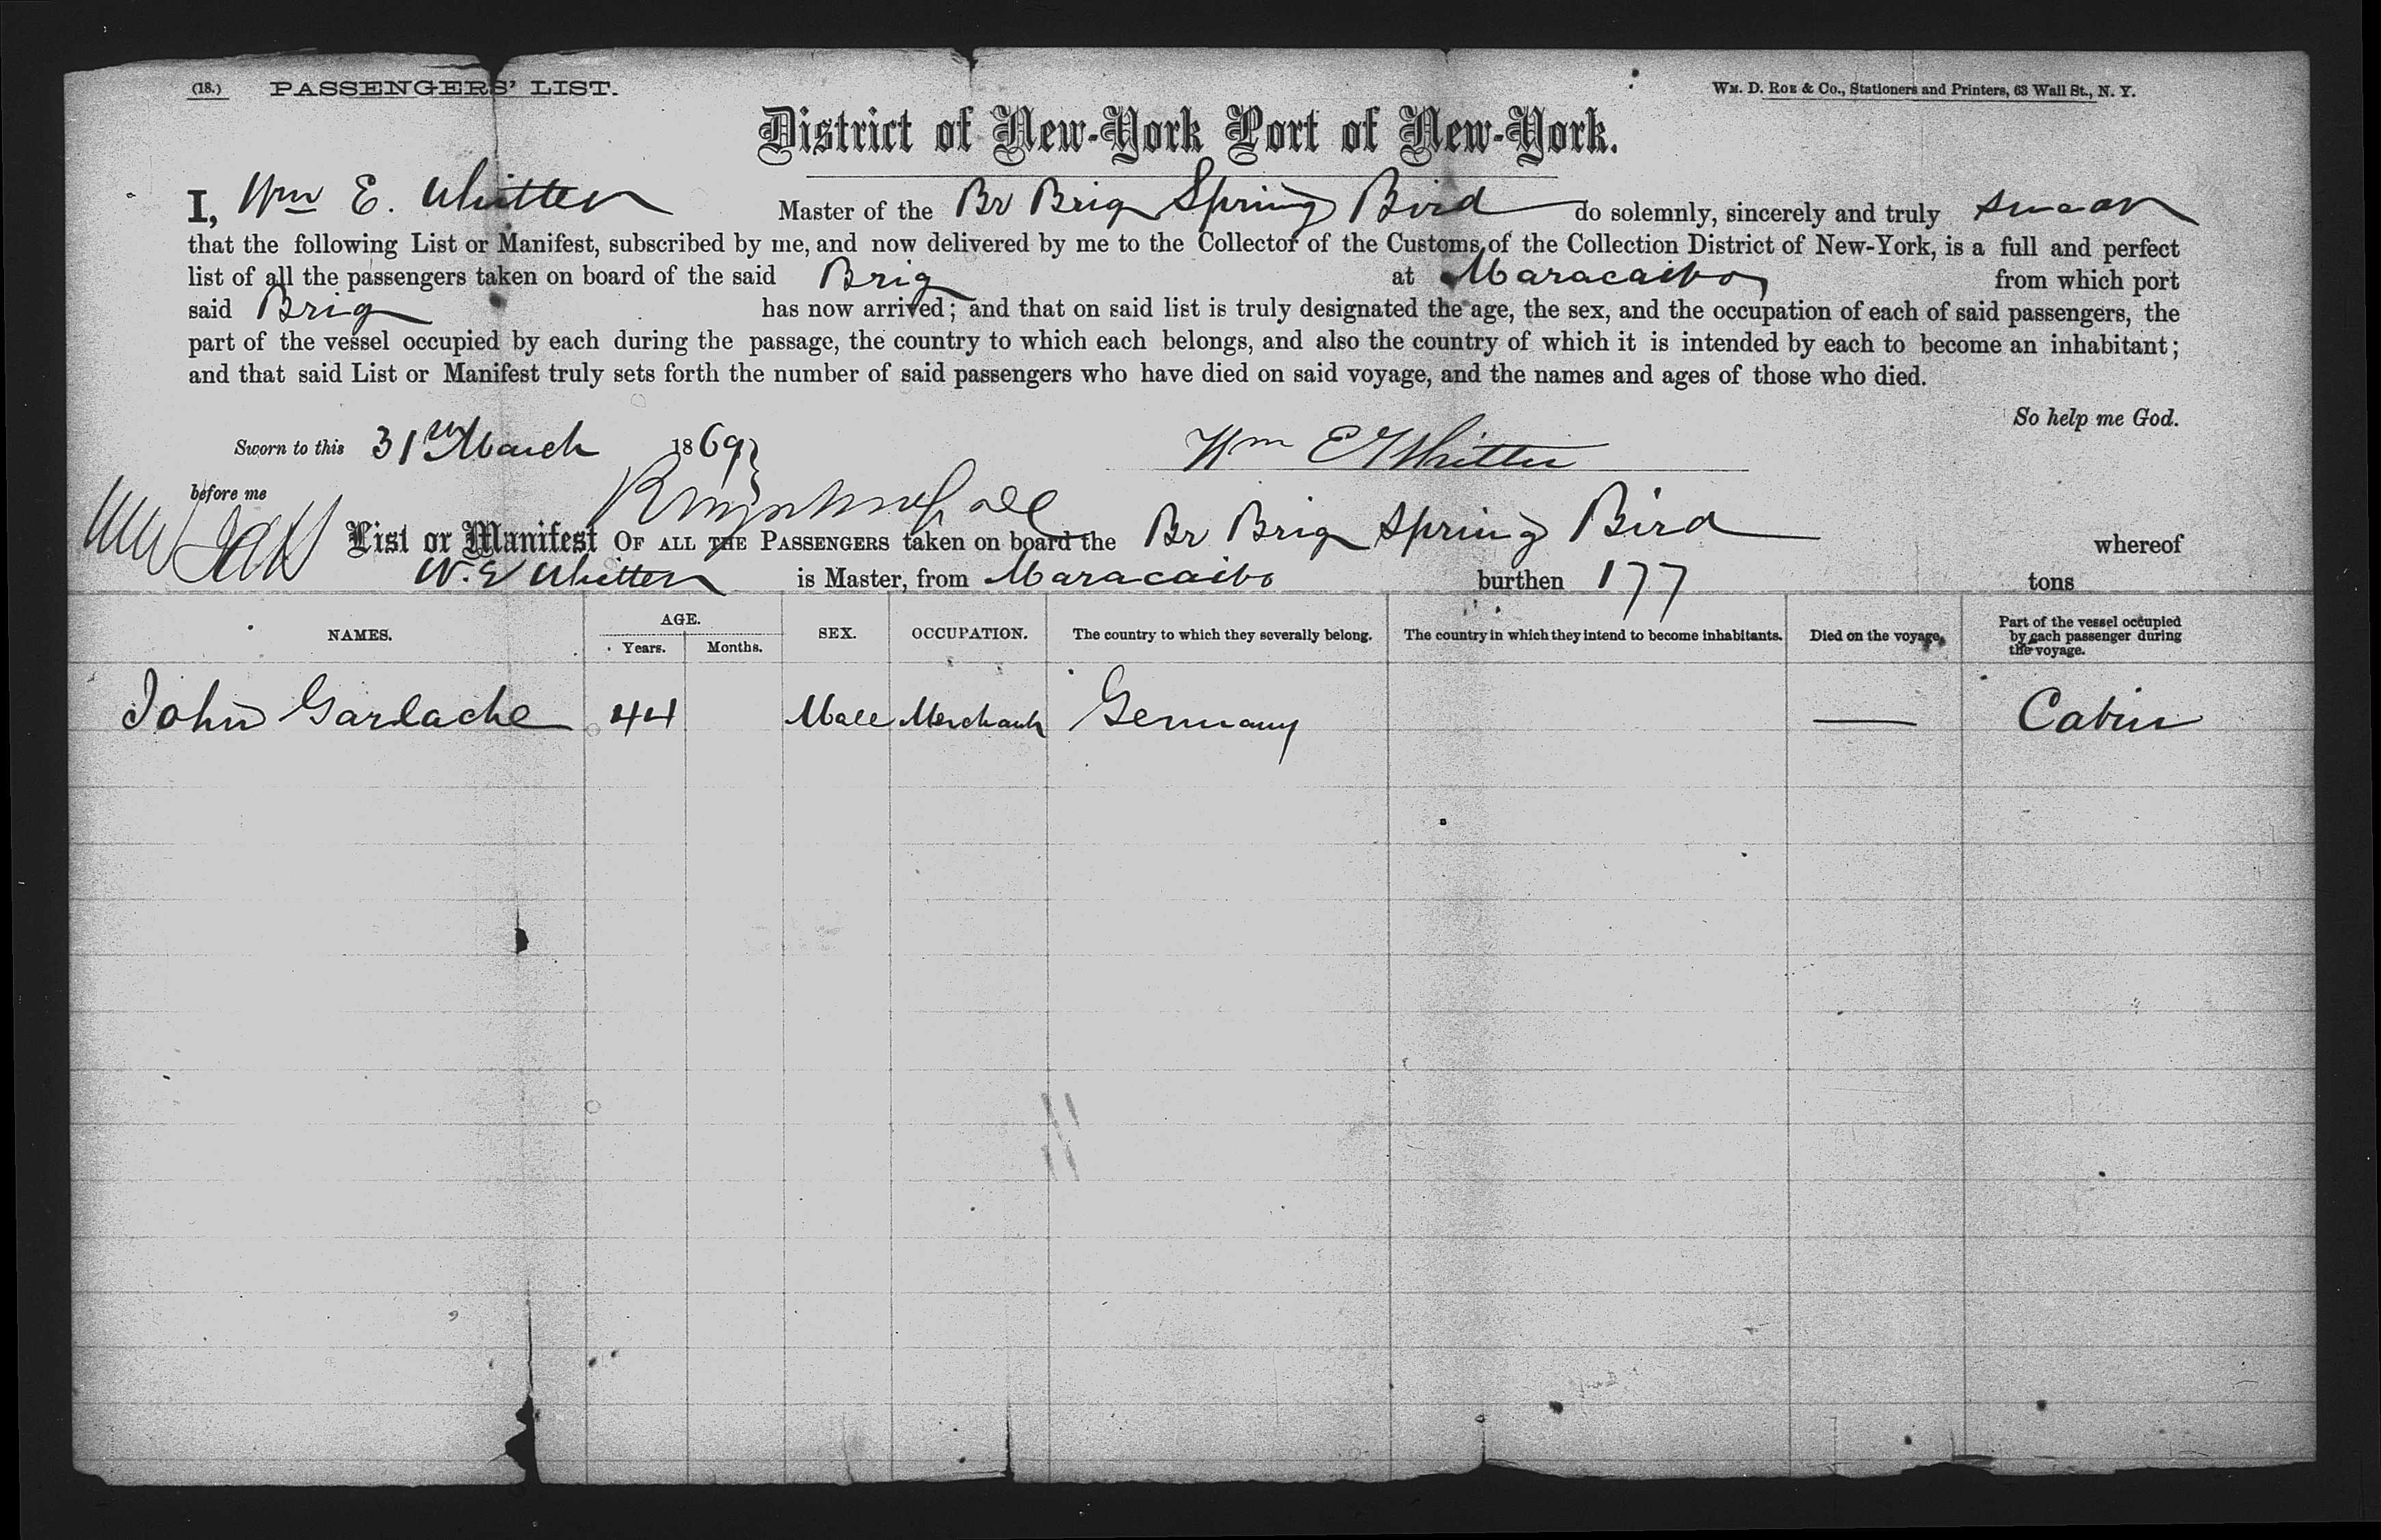 (18.) PASSENGERS' LIST.
Wm. D. Roe & Co., Stationers and Printers, 63 Wall St., N. Y.
District of New-York Port of New-York.
I, Wm E. Whitten Master of the Br Brig Spring Bird do solemnly, sincerely and truly swear
that the following List or Manifest, subscribed by me, and now delivered by me to the Collector of the Customs, of the Collection District of New-York, is a full and perfect
list of all the passengers taken on board of the said Brig at Maracaibo from which port
said Brig has now arrived; and that on said list is truly designated the age, the sex, and the occupation of each of said passengers, the
part of the vessel occupied by each during the passage, the country to which each belongs, and also the country of which it is intended by each to become an inhabitant;
and that said List or Manifest truly sets forth the number of said passengers who have died on said voyage, and the names and ages of those who died.
So help me God.
Sworn to this 31st March 1869 } Wm E Whitten
before me
List or Manifest OF ALL THE PASSENGERS taken on board the Br Brig Spring Bird whereof
W. E Whitten is Master, from Maracaibo burthen 177 tons
NAMES. AGE. Years. Months. SEX. OCCUPATION. The country to which they severally belong. The country in which they intend to become inhabitants. Died on the voyage. Part of the vessel occupied by each passenger during the voyage.
John Garlache 44 Male Merchant Germany — Cabin